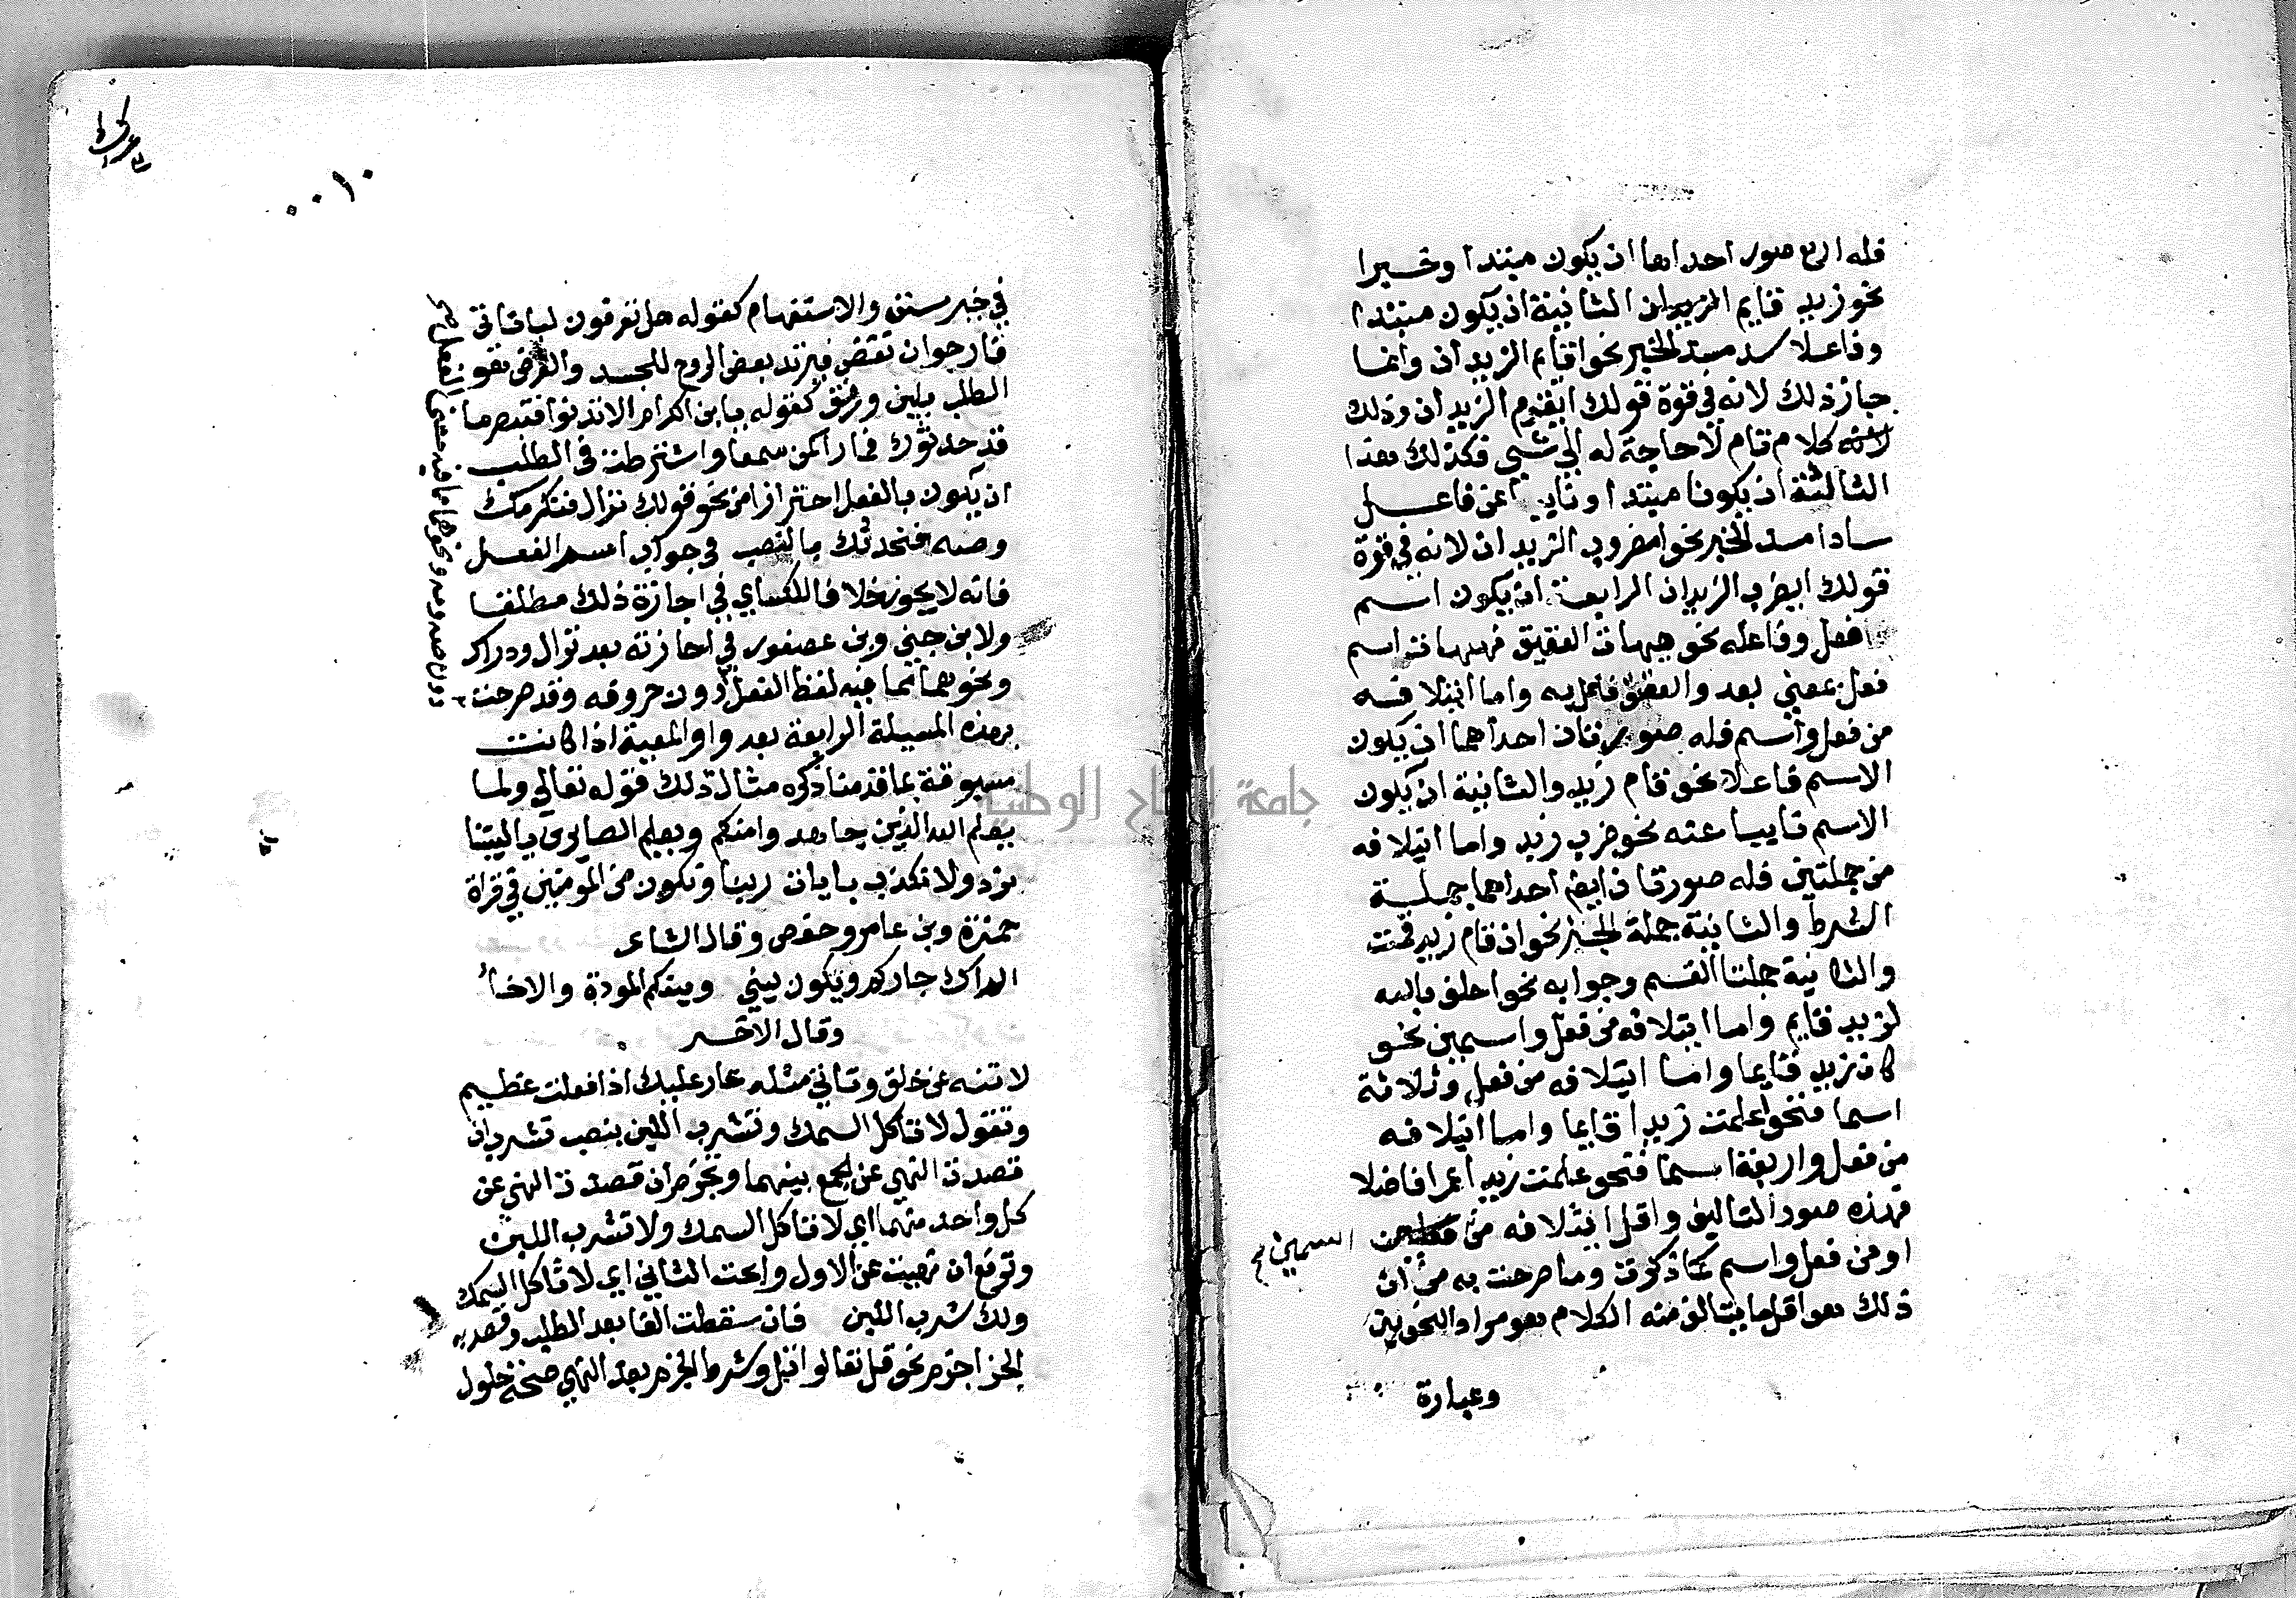 فله اربع صور احداها ان يكون مبتدا وخبرا
نحو زيد قايم الزيدان الثانية ان يكون مبتدا
وفاعلا سد مسد الخبر نحو اقايم الزيدان وانما
جاز ذلك لانه في قوة قولك ايقوم الزيدان وذلك
لانه كلام تام لا حاجة له الي شي فكذلك هذا
الثالثة ان يكونا مبتدا ونايبا عن فاعل
سادا مسد الخبر نحو امضروب الزيدان لانه في قوة
قولك ايضرب الزيدان الرابعة ان يكون اسم
فعل وفاعله نحو هيهات العقيق فهيهات اسم
فعل بمعني بعد والعقيق فاعل به واما ايتلافه
من فعل واسم فله صورتان احداهما ان يكون
الاسم فاعلا نحو قام زيد والثانية ان يكون
الاسم نايبا عنه نحو ضرب زيد واما ايتلافه
من جملتين فله صورتان ايضا احداهما جملة
الشرط والثانية جملة الخبر نحو ان قام زيد قمت
والثانية جملتا القسم وجوابه نحو احلف بالله
لزيد قايم واما ايتلافه من فعل واسمين نحو
كان زيد قايما واما ايتلافه من فعل وثلاثة
اسما فنحو اعلمت زيدا قايما واما ايتلافه
من فعل واربعة اسما فنحو علمت زيدا عمرا فاضلا
فهذه صور التاليف واقل ايتلافه من اسمين صح
او من فعل واسم كما ذكرت وما صرحت به من ان
ذلك هو اقل ما يتالف منه الكلام هو مراد النحويين
وعبارة
٠٠١٠
في خير سنن والاستفهام كقوله هل تعرفون لباناتي
فارجوان تقض فيرتد بعض الروح للجسد والعرض نحو
الطلب بلين ورفق كقوله يا بن الكرام الا تدنوا فتبصر ما
قد حدثوك فما راكمن سمعا واشترطت في الطلب
ان يكون بالفعل احترازا من نحو قولك نزال فنكرمك
وصه فنحدثك بالنصب في جواب اسم الفعل
فانه لا يجوز خلافا للكساي في اجازة ذلك مطلقا
ولا بن جني وبن عصفور في اجازته بعد نزال ودراك
ونحوهما مما فيه لفظ الفعل دون حروفه وقد صرحت
دون صه ومه ونحوهما مما فيه معنى الفعل صح
بهذه المسيلة الرابعة بعد واو المعية اذا كانت
مسبوقة بما قدمنا ذكره مثال ذلك قوله تعالي ولما
يعلم الله الذين جاهدوا منكم ويعلم الصابرين ياليتنا
نرد ولا نكذب بايات ربنا ونكون من المومنين في قراة
حمزة وبن عامر وحفص وقال الشاعر
الم اك جاركم ويكون بيني وبينكم المودة والاخا
وقال الاخر
لا تنه عن خلق وتاتي مثله عار عليك اذا فعلت عظيم
وتقول لا تاكل السمك وتشرب اللبن بنصب تشرب ان
قصدت النهي عن الجمع بينهما وتجزم ان قصدت النهي عن
كل واحد منهما اي لا تاكل السمك ولا تشرب اللبن
وترفع ان نهيت عن الاول وابحت الثاني اي لا تاكل السمك
ولك شرب اللبن فان سقطت الفا بعد الطلب وقصد به
الجزا جزم نحو قل تعالوا اتل وشرط الجزم بعد النهي صحة حلول
جامعة النجاح الوطنية